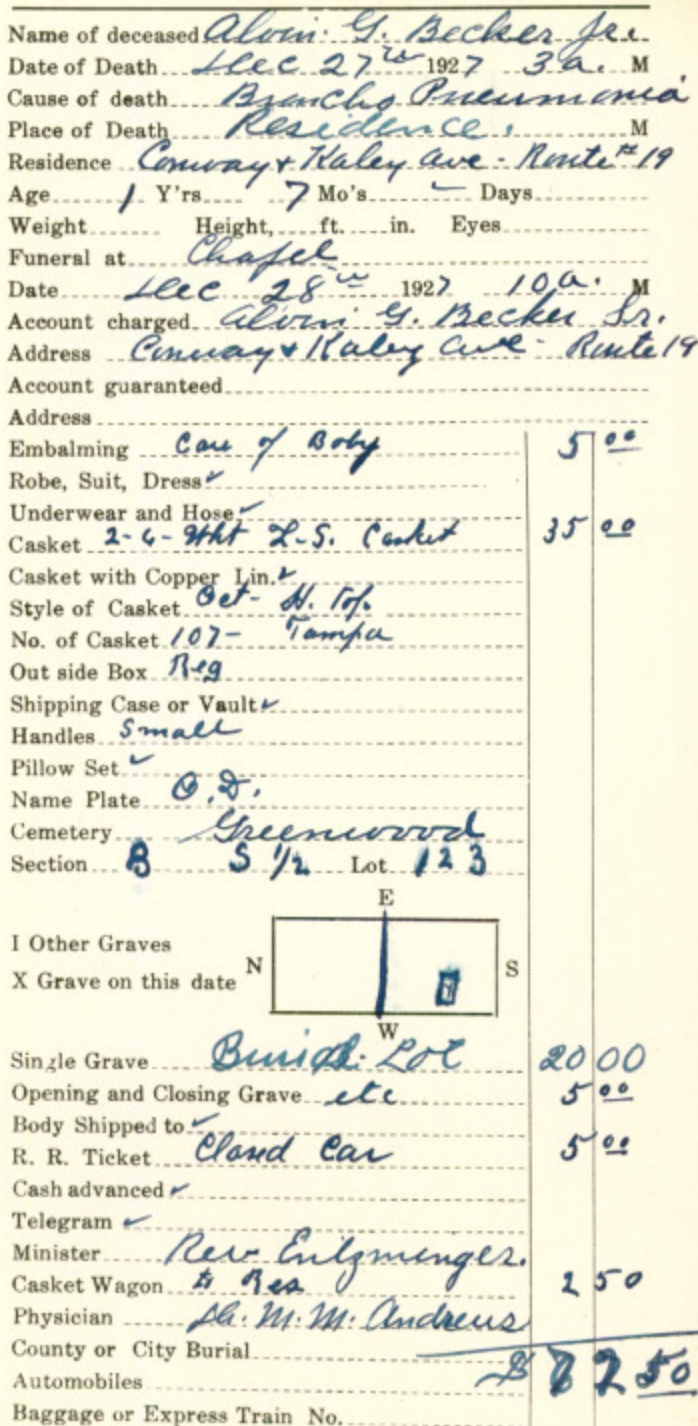 Name of deceased Alvin G. Becker Jr.
Date of Death Dec 27th 1927 3 a. M
Cause of death Broncho Pneumonia
Place of Death Residence. M
Residence Conway & Kaley Ave - Route # 19
Age 1 Y'rs 7 Mo's - Days
Weight Height, ft. in. Eyes
Funeral at Chapel
Date Dec 28th 1927 10 a. M
Account charged Alvin G. Becker Sr.
Address Conway & Kaley Ave - Route 19
Account guaranteed
Address
Embalming Care of Body 5 00
Robe, Suit, Dress ✓
Underwear and Hose ✓
Casket 2-6- Wht L-S. Casket 35 00
Casket with Copper Lin. ✓
Style of Casket Oct- H. Top.
No. of Casket 107- Tampa
Out side Box Reg
Shipping Case or Vault ✓
Handles Small
Pillow Set ✓
Name Plate O.D.
Cemetery Greenwood
Section B S 1/2 Lot 123
E
I Other Graves
N S
X Grave on this date
W
Single Grave Lot 20 00
Opening and Closing Grave etc 5 00
Body Shipped to ✓
R. R. Ticket Closed Car 5 00
Cash advanced ✓
Telegram ✓
Minister Rev
Casket Wagon to Res 2 50
Physician Dr. M. M. Andrews
County or City Burial
Automobiles $ 72 50
Baggage or Express Train No.